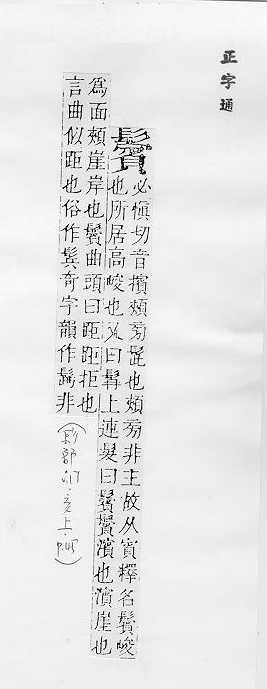 正字通
鬢
必愼切音擯頰旁髭也頰旁非主故从賓釋名鬢峻
也所居高峻也又曰髥上連髮曰鬢鬢濱也濱崖也
爲面頰崖岸也鬢曲頭曰距距拒也
言曲似距也俗作鬂奇字韻作髩非